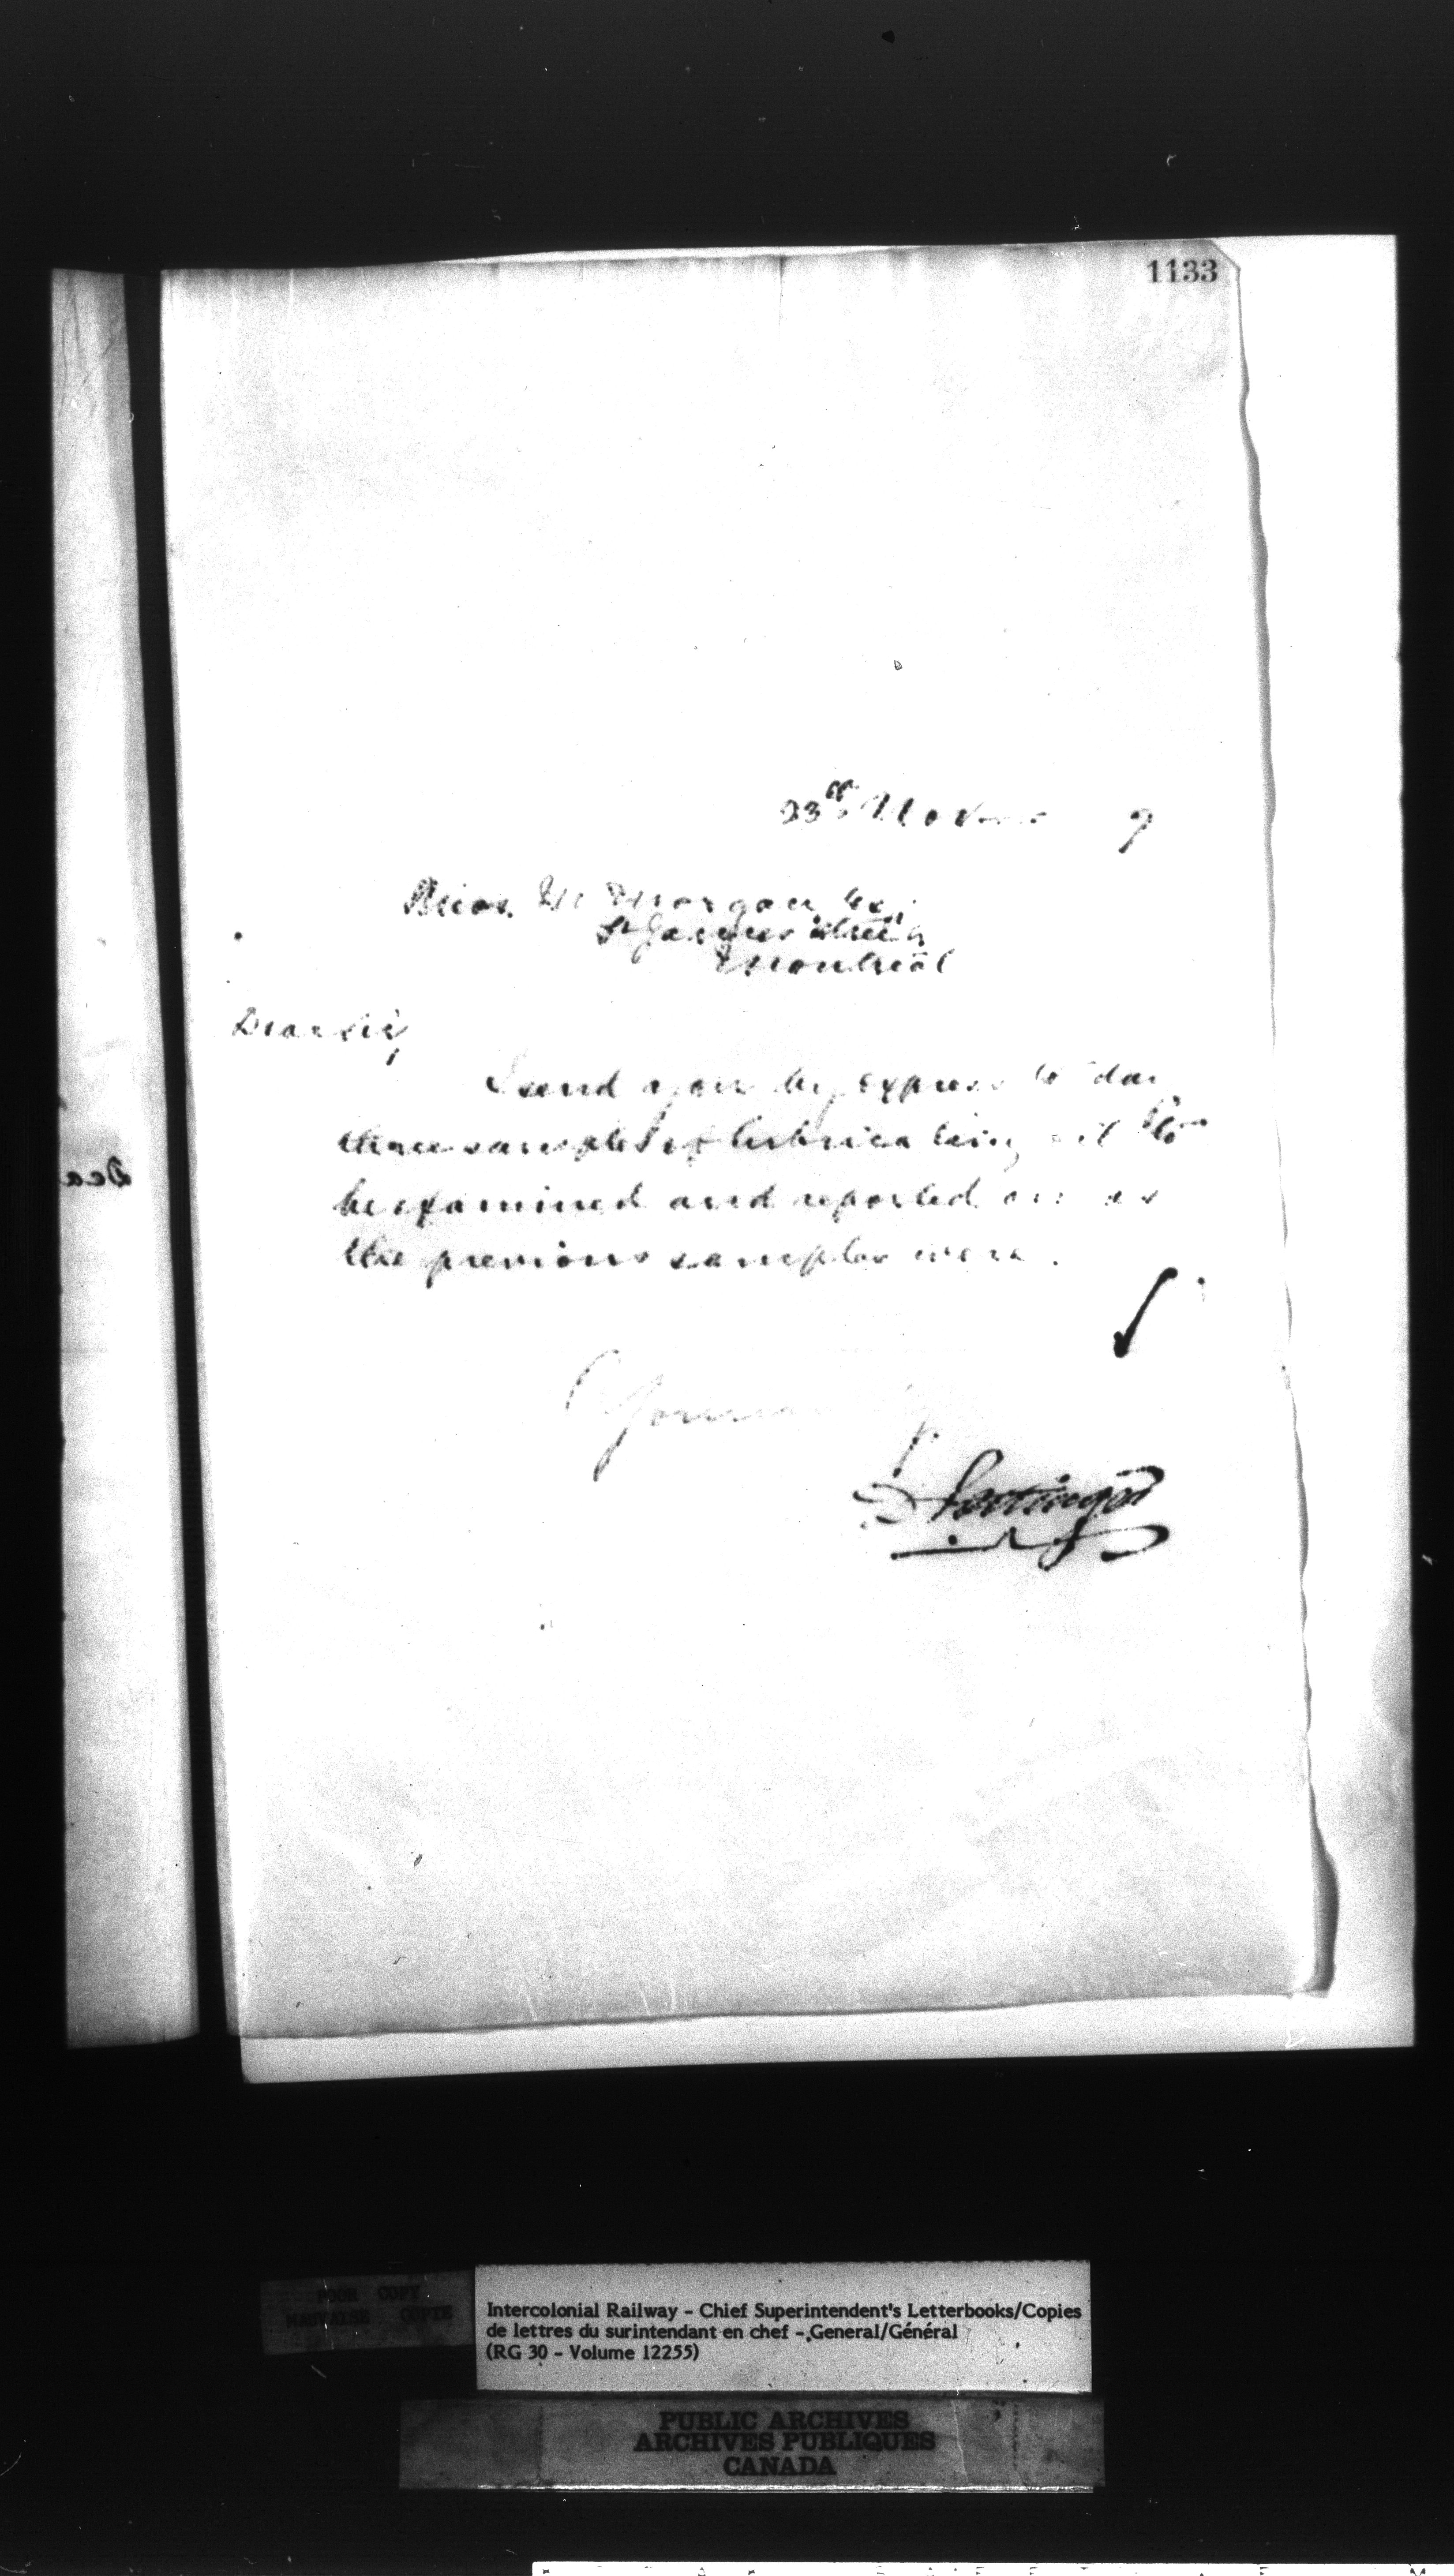 1133
23rd Nov 9
Morgan
St James Street
Montreal
Dear Sir,
I send you by express to day
three samples of lubricating oil to
be examined and reported on as
the previous samples were.
Yours
D Pottinger
Dea
POOR COPY
MAUVAISE COPIE
Intercolonial Railway - Chief Superintendent's Letterbooks/Copies
de lettres du surintendant en chef - General/Général
(RG 30 - Volume 12255)
PUBLIC ARCHIVES
ARCHIVES PUBLIQUES
CANADA